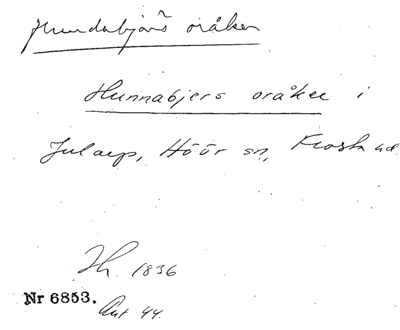 Hundabjärs oråker
Hunnabjers oråker i
Jularp, Höör sn, Frosta hd
Th. 1836
Nr 6853.
Ant 44.